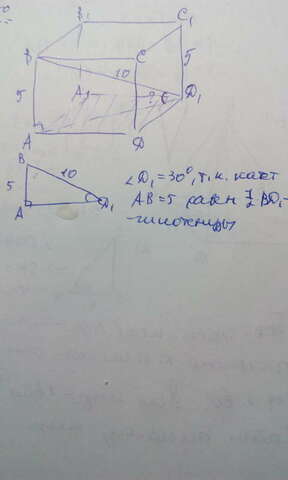 B₁
C₁
B
C
10
5
5
A₁
?
D₁
A
D
B
5
10
A
D₁
∠D₁ = 30°, т.к. катет
AB = 5 равен ½ BD₁ -
- гипотенузы